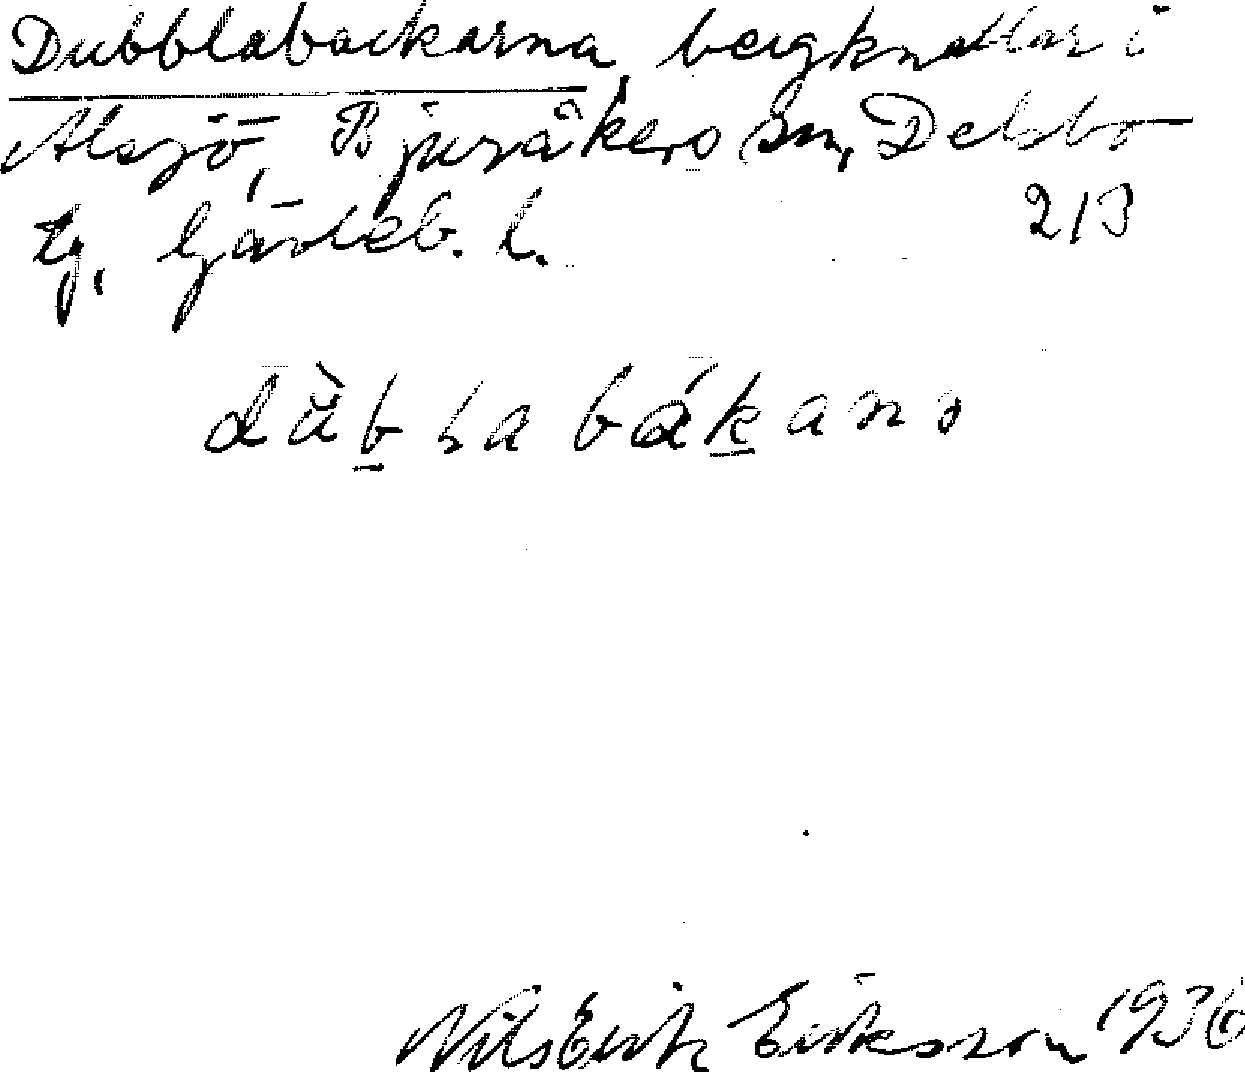 Dubblabackarna, bergknallar i
Alsjö, Bjuråkers sn, Delsbo
tg, Gävleb. l. 213
bákana
Nils Erik Eriksson 1936